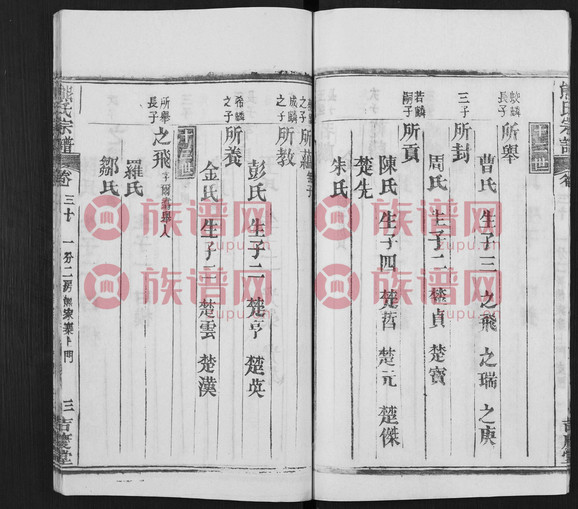 熊氏宗譜
十二世
所舉
長子
曹氏 生子三 之飛 之瑞 之庚
所封
三子
周氏 生子二 楚貞 楚寶
所貢
若麟
嗣子
陳氏 生子四 楚哲 楚元 楚傑
楚先
朱氏
之子
所教
成麟
之子
彭氏 生子二 楚亨 楚英
所養
希麟
之子
金氏 生子二 楚雲 楚漢
十三世
之飛
所舉
長子
羅氏
鄒氏
熊氏宗譜
卷
三十
三
吉慶堂
族谱网
zupu.cn